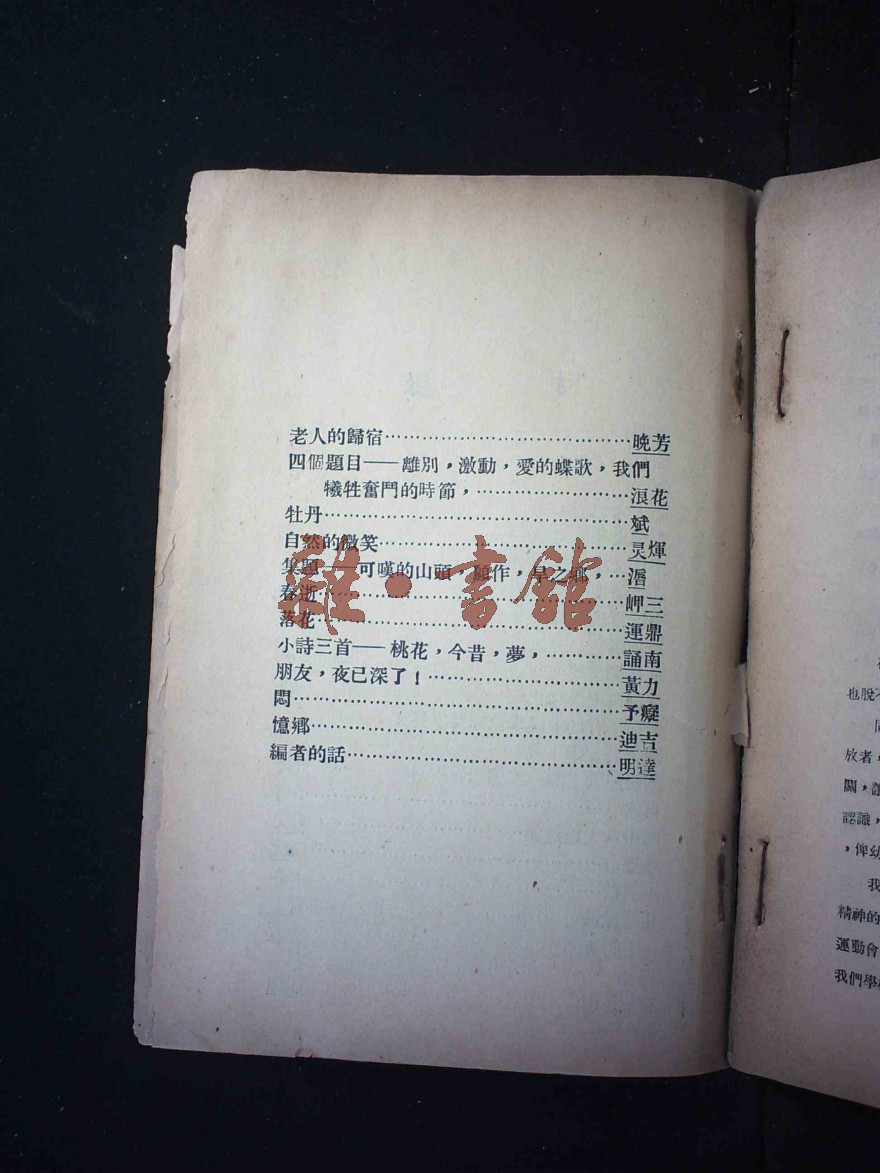 老人的歸宿……………………………………晚芳
四個題目——離別,激動,愛的蝶歌,我們
犧牲奮鬥的時節,……………………浪花
牡丹……………………………………………斌
自然的微笑……………………………………灵煇
集題——可嘆的山頭,願作,之鄉,…
春逝……………………………………………岬三
落花……………………………………………運鼎
小詩三首——桃花,今昔,夢,…………誦南
朋友,夜已深了!……………………………黃力
悶………………………………………………予癡
憶鄉……………………………………………迪吉
編者的話………………………………………明達
雜·書館
也脫
放者,
關,
認識,
,俾幼
我
精神的
運動會
我們學